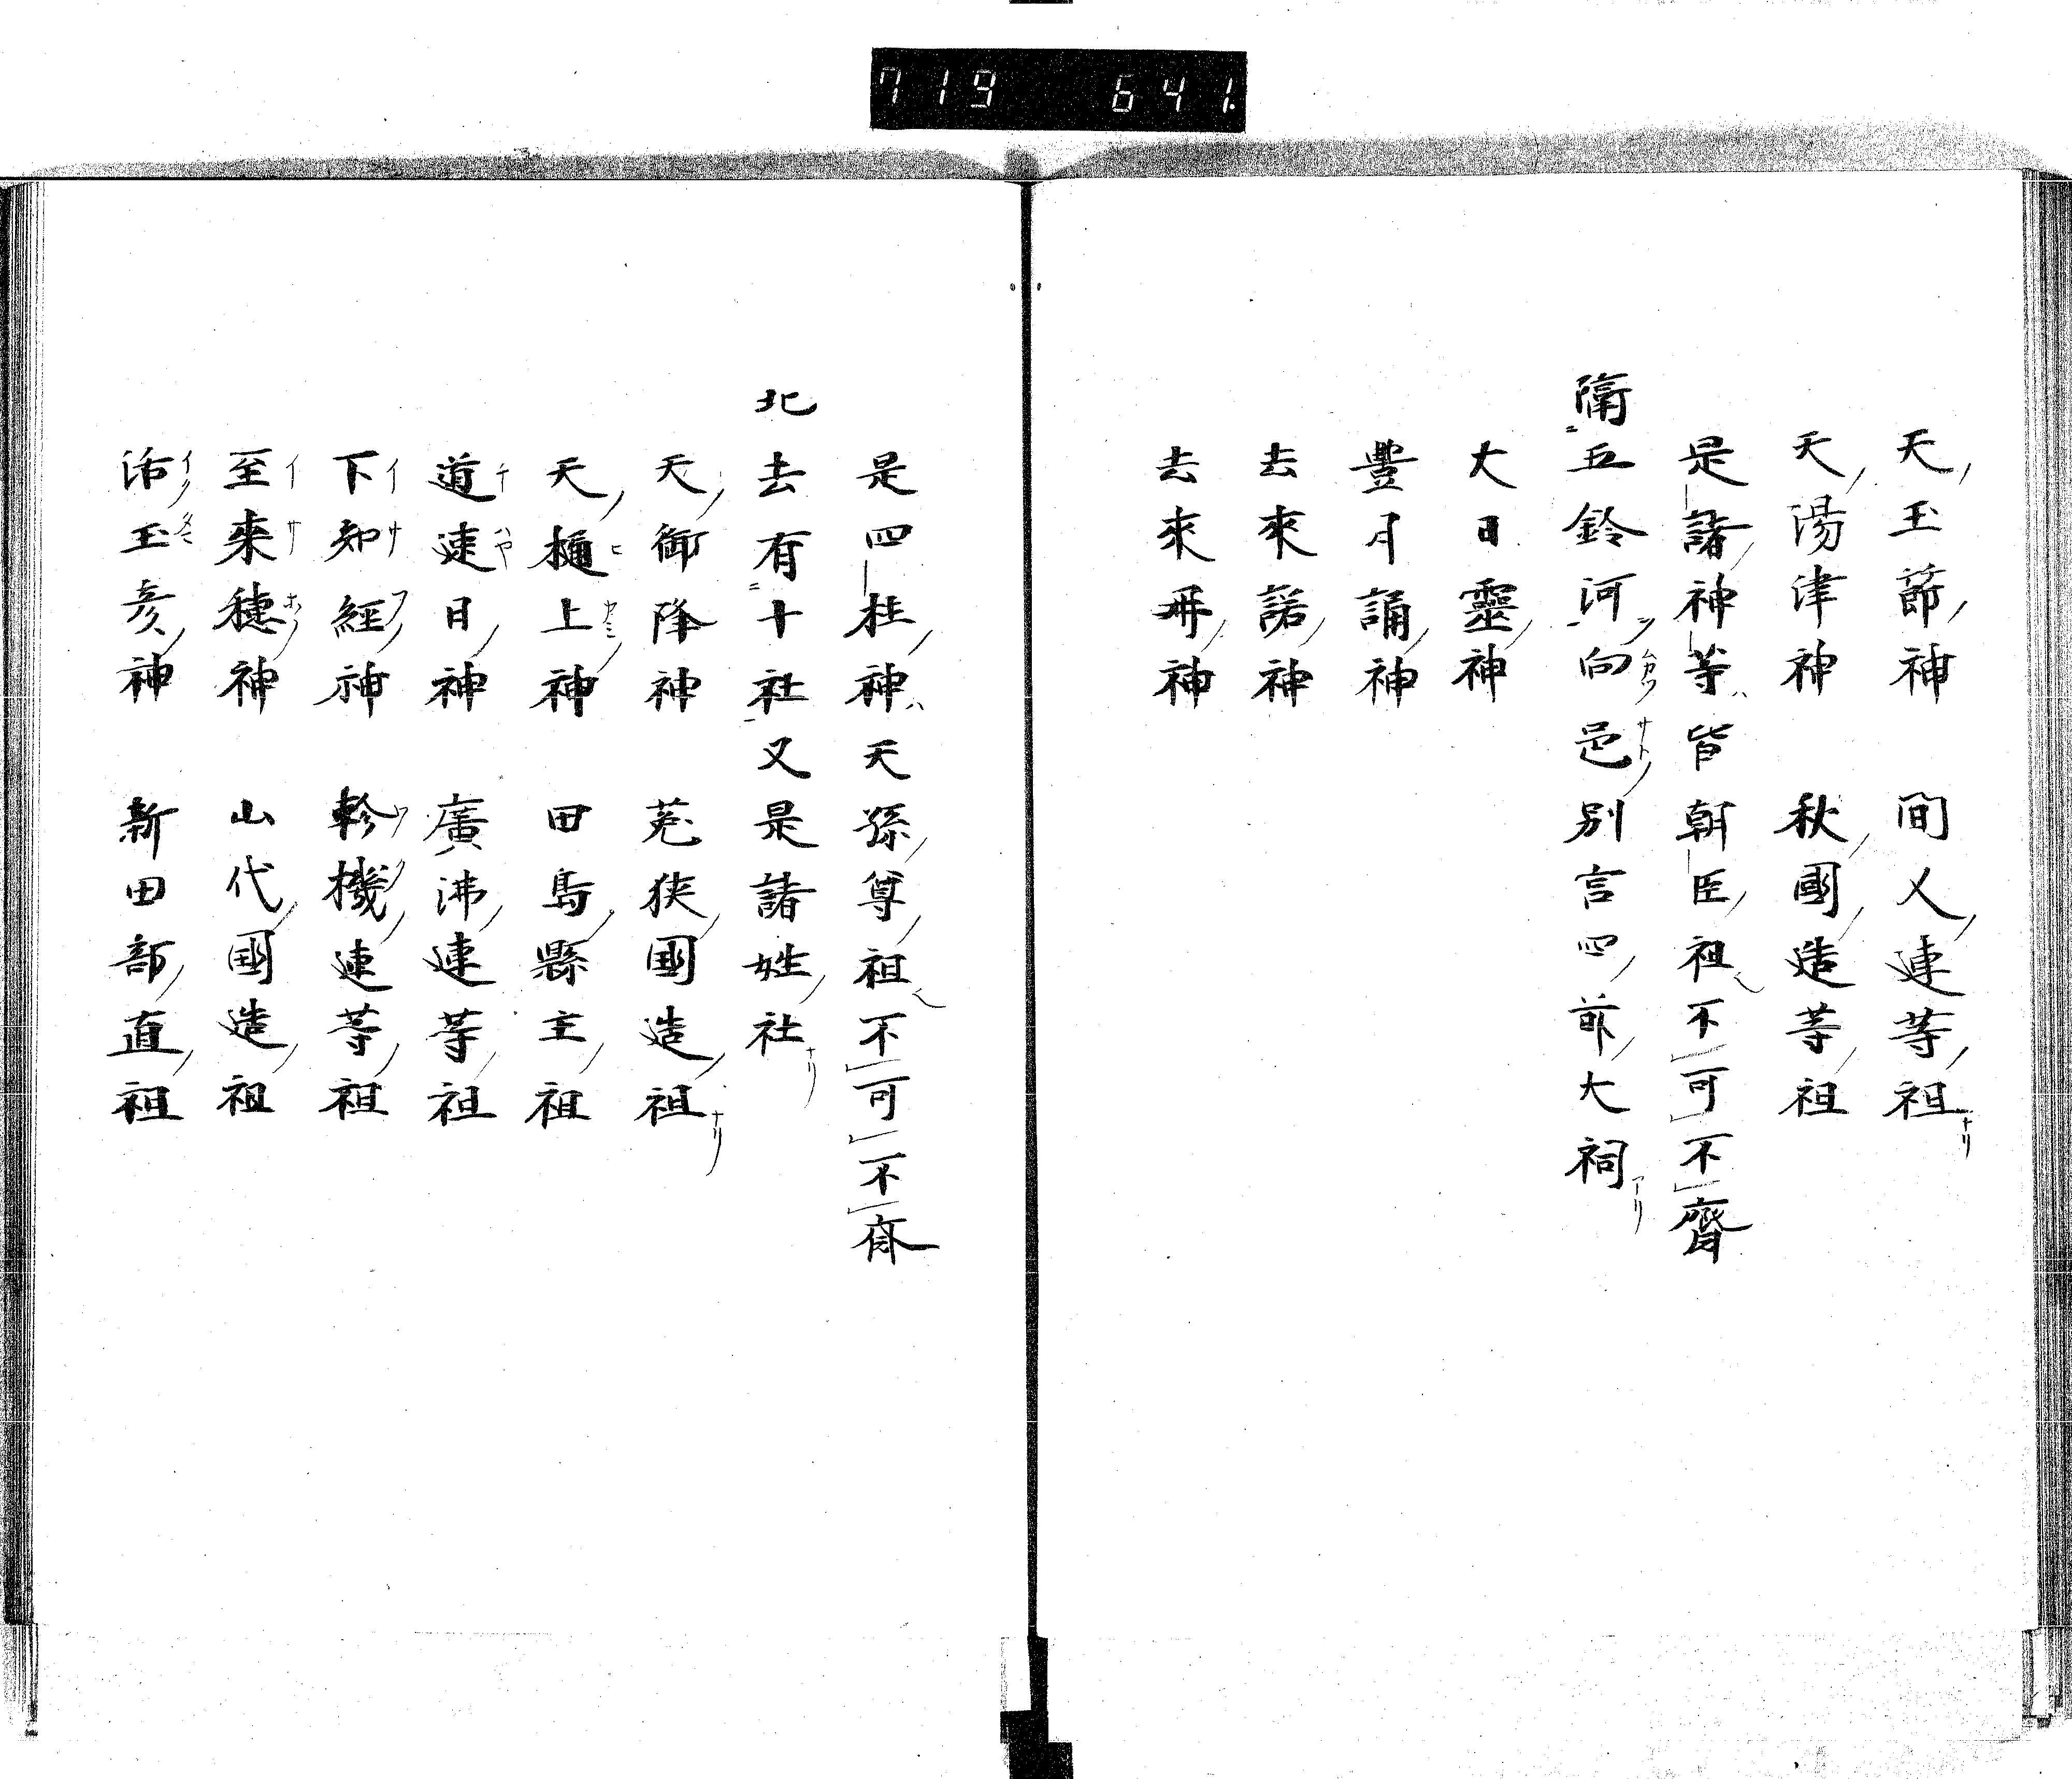 719 641.
天玉節神 間人連等祖ナリ
天湯津神 秋國造等祖
是諸神等ハ皆朝臣祖不可不齋
隔ニ五鈴河向邑別言四前大祠アリ
大日靈神
豊月誦神
去來諾神
去來冊神
是四柱神ハ天孫尊祖不可不斎
北去有十社又是諸姓社ナリ
天御降神 菟狭國造祖ナリ
天樋上神 田嶌縣主祖
道速日神 廣沸連等祖
下知經神 軫機連等祖
至來穗神 山代國造祖
活玉彦神 新田部直祖